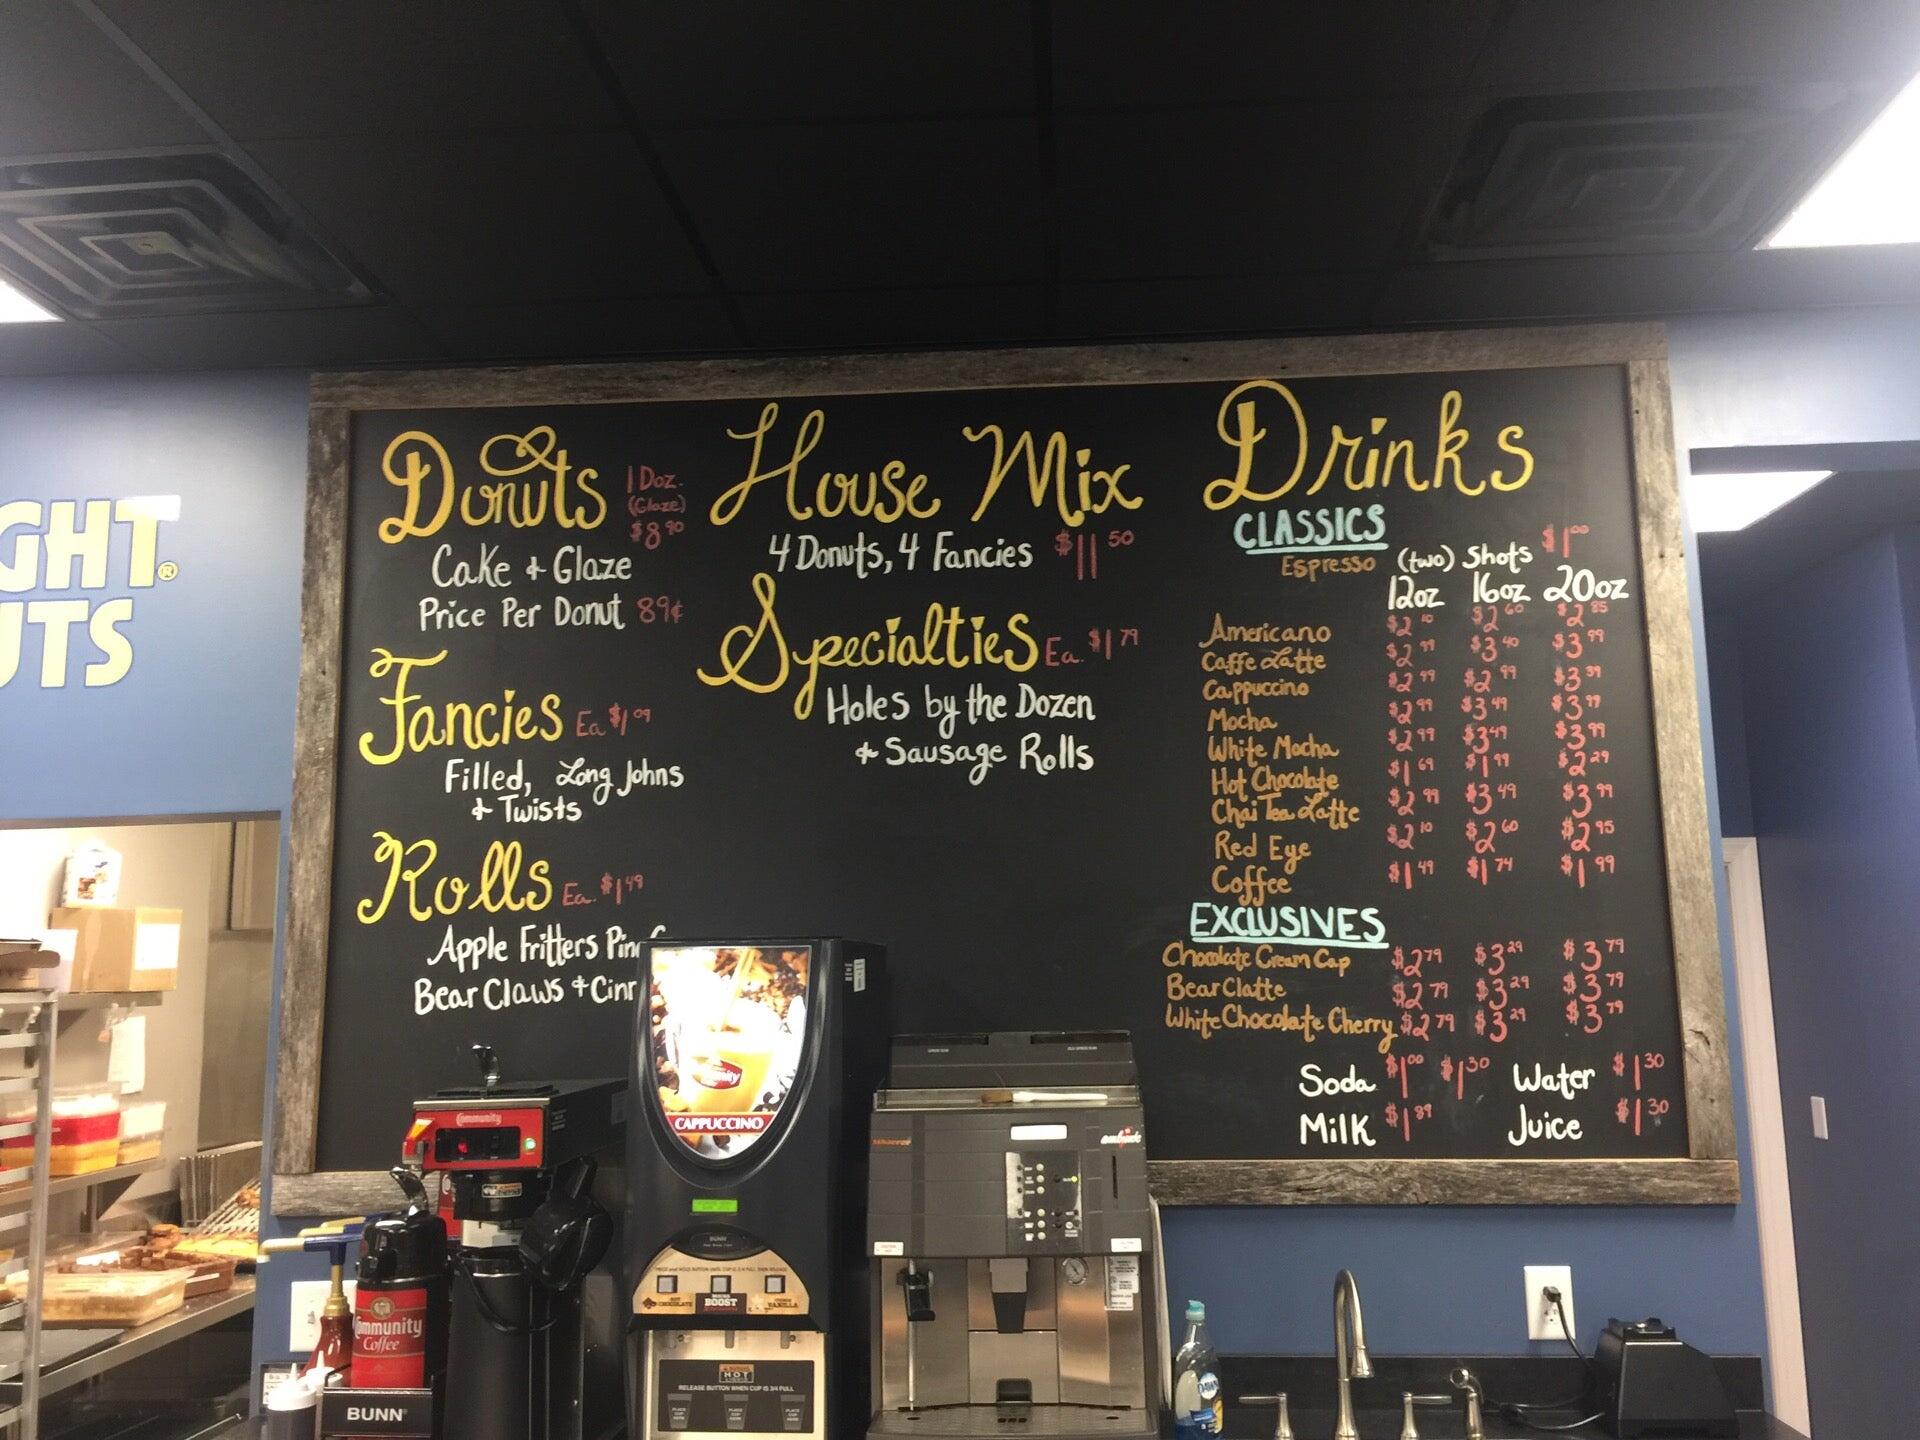 GHT®
UTS
Donuts 1 Doz.
(Glaze)
$8.90
Cake & Glaze
Price Per Donut 89¢
Fancies Ea $1.09
Filled, Long Johns
& Twists
Rolls Ea. $1.49
Apple Fritters
Bear Claws &
House Mix
4 Donuts, 4 Fancies $11.50
Specialties Ea. $1.79
Holes by the Dozen
& Sausage Rolls
Drinks
CLASSICS
Espresso (two) Shots $1.00
12oz 16oz 20oz
Americano $2.10 $2.60 $2.85
Caffe Latte $2.99 $3.40 $3.99
Cappuccino $2.99 $2.99 $3.39
Mocha $2.99 $3.49 $3.99
White Mocha $2.99 $3.49 $3.99
Hot Chocolate $1.69 $1.99 $2.29
Chai Tea Latte $2.99 $3.49 $3.99
Red Eye $2.10 $2.60 $2.95
Coffee $1.49 $1.74 $1.99
EXCLUSIVES
Chocolate Cream Cap $2.79 $3.29 $3.79
Bear Clatte $2.79 $3.29 $3.79
White Chocolate Cherry $2.79 $3.29 $3.79
Soda $1.00 $1.30 Water $1.30
Milk $1.89 Juice $1.30
Community
CAPPUCCINO
BUNN
HOT CHOCOLATE
BOOST
VANILLA
HOT
RELEASE BUTTON WHEN CUP IS 3/4 FULL
PLACE CUP HERE
PLACE CUP HERE
PLACE CUP HERE
Community
Coffee
BUNN
DAWN